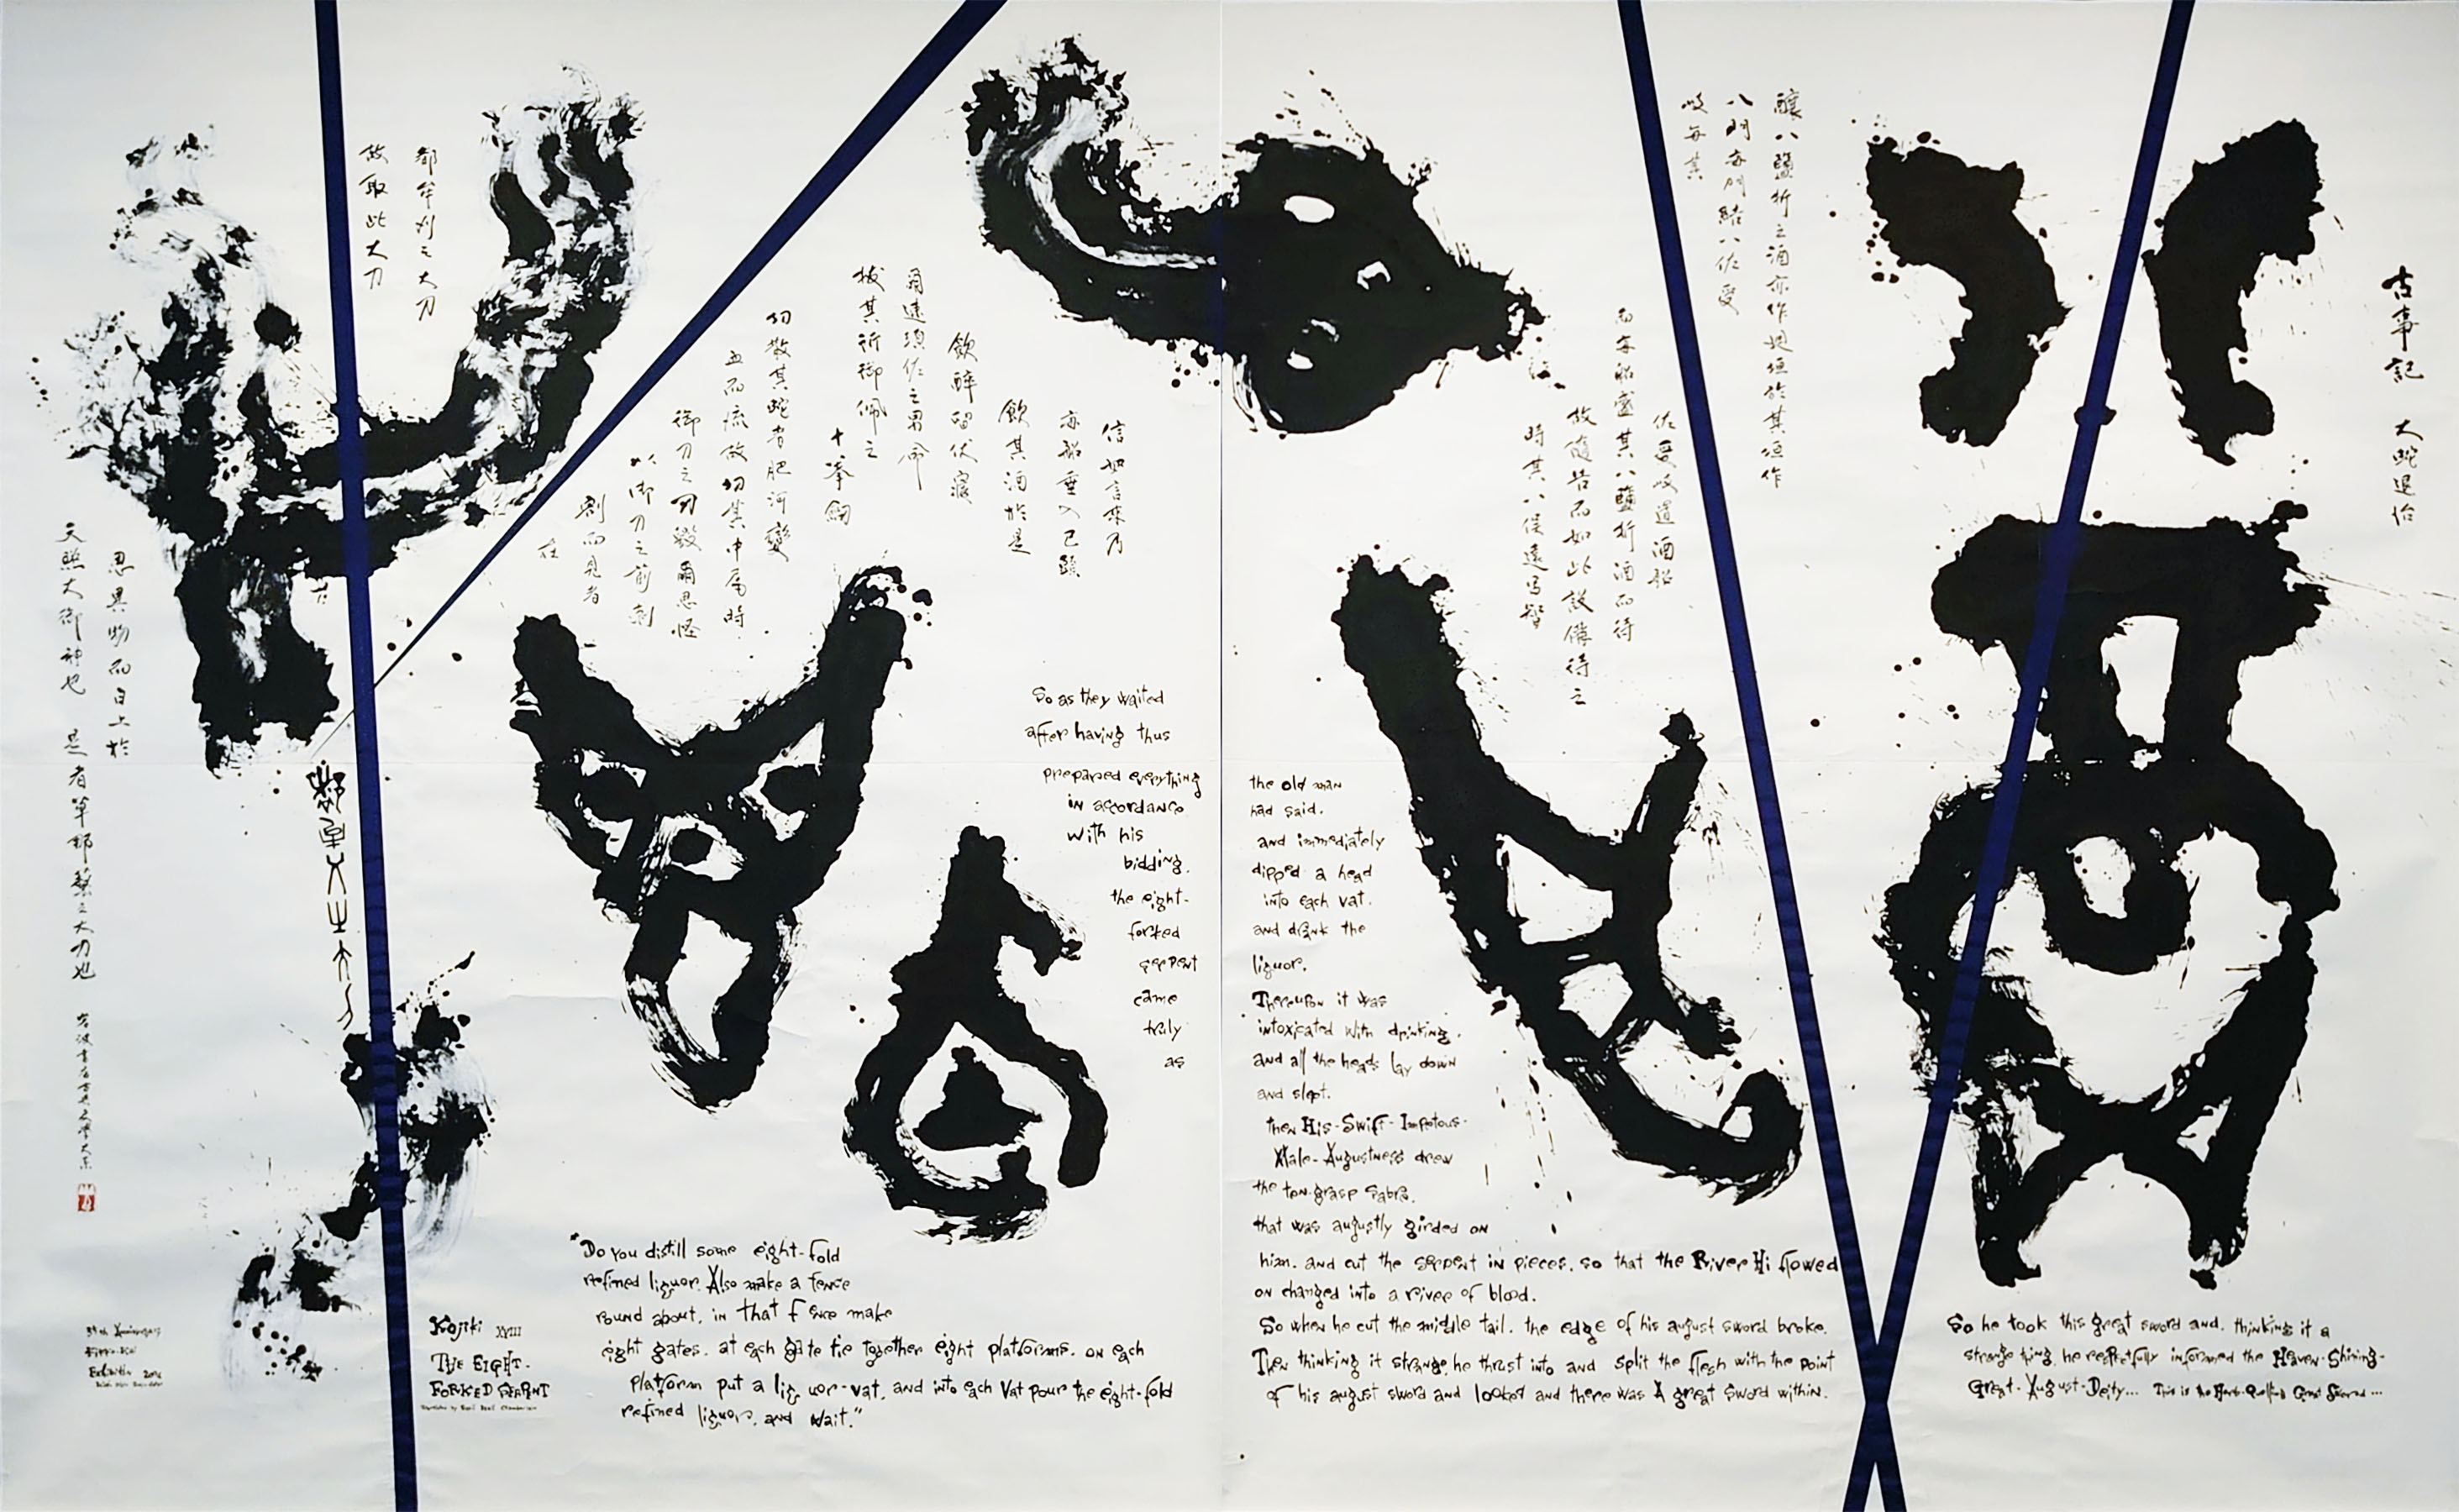 古事記 大蛇退治
醸八鹽折之酒亦作廻垣於其垣作
八門毎門結八佐受
岐毎其
佐受岐置酒船
而毎船盛其八鹽折酒而待
故随告而如此設備待之
時其八俣遠呂智
信如言来乃
毎船垂入己頭
飲其酒於是
飲酔留伏寝
爾速須佐之男命
抜其所御佩之
十拳劔
切散其蛇者肥河變
血而流故切其中尾時
御刀之刃毀爾思怪
以御刀之前刺
割而見者
在
都牟刈之大刀
故取此大刀
思異物而白上於
天照大御神也 是者草那藝之大刀也
Kojiki XVIII
THE EIGHT-
FORKED SERPENT
"Do you distill some eight-fold
refined liquor. Also make a fence
round about, in that fence make
eight gates. at each gate tie together eight platforms. on each
platform put a liquor-vat, and into each vat pour the eight-fold
refined liquor, and wait."
So as they waited
after having thus
prepared everything
in accordance
with his
bidding.
the eight-
forked
serpent
came
truly
as
the old man
had said.
and immediately
dipped a head
into each vat.
and drank the
liquor.
Thereupon it was
intoxicated with drinking.
and all the heads lay down
and slept.
then His-Swift-Impetous-
Male-Augustness drew
the ten-grasp sabre.
that was augustly girded on
him. and cut the serpent in pieces. so that the River Hi flowed
on changed into a river of blood.
So when he cut the middle tail. the edge of his august sword broke.
Then thinking it strange, he thrust into and split the flesh with the point
of his august sword and looked and there was A great sword within.
So he took this great sword and. thinking it a
strange thing, he respectfully informed the Heaven-Shining-
Great-August-Deity... This is the Herb-Quelling Great Sword...